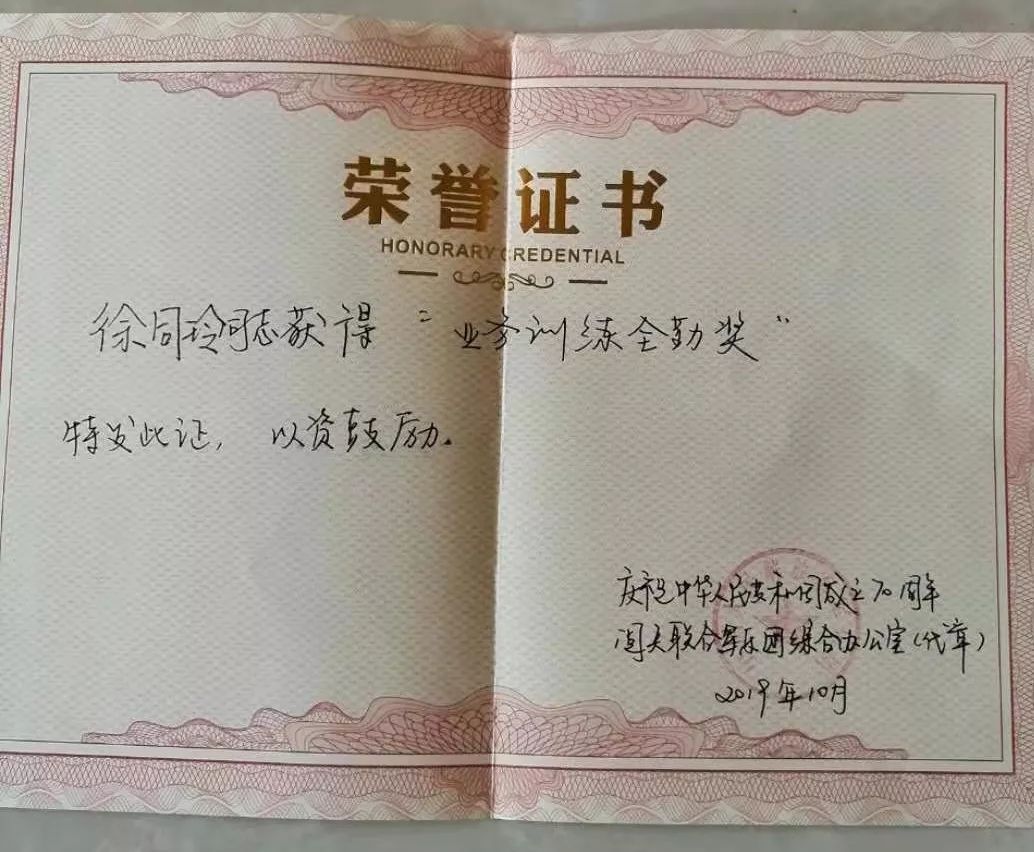 荣誉证书
HONORARY CREDENTIAL
徐同玲同志获得“业务训练全勤奖”
特发此证，以资鼓励.
庆祝中华人民共和国成立70周年
阅兵联合军乐团综合办公室(代章)
2019年10月